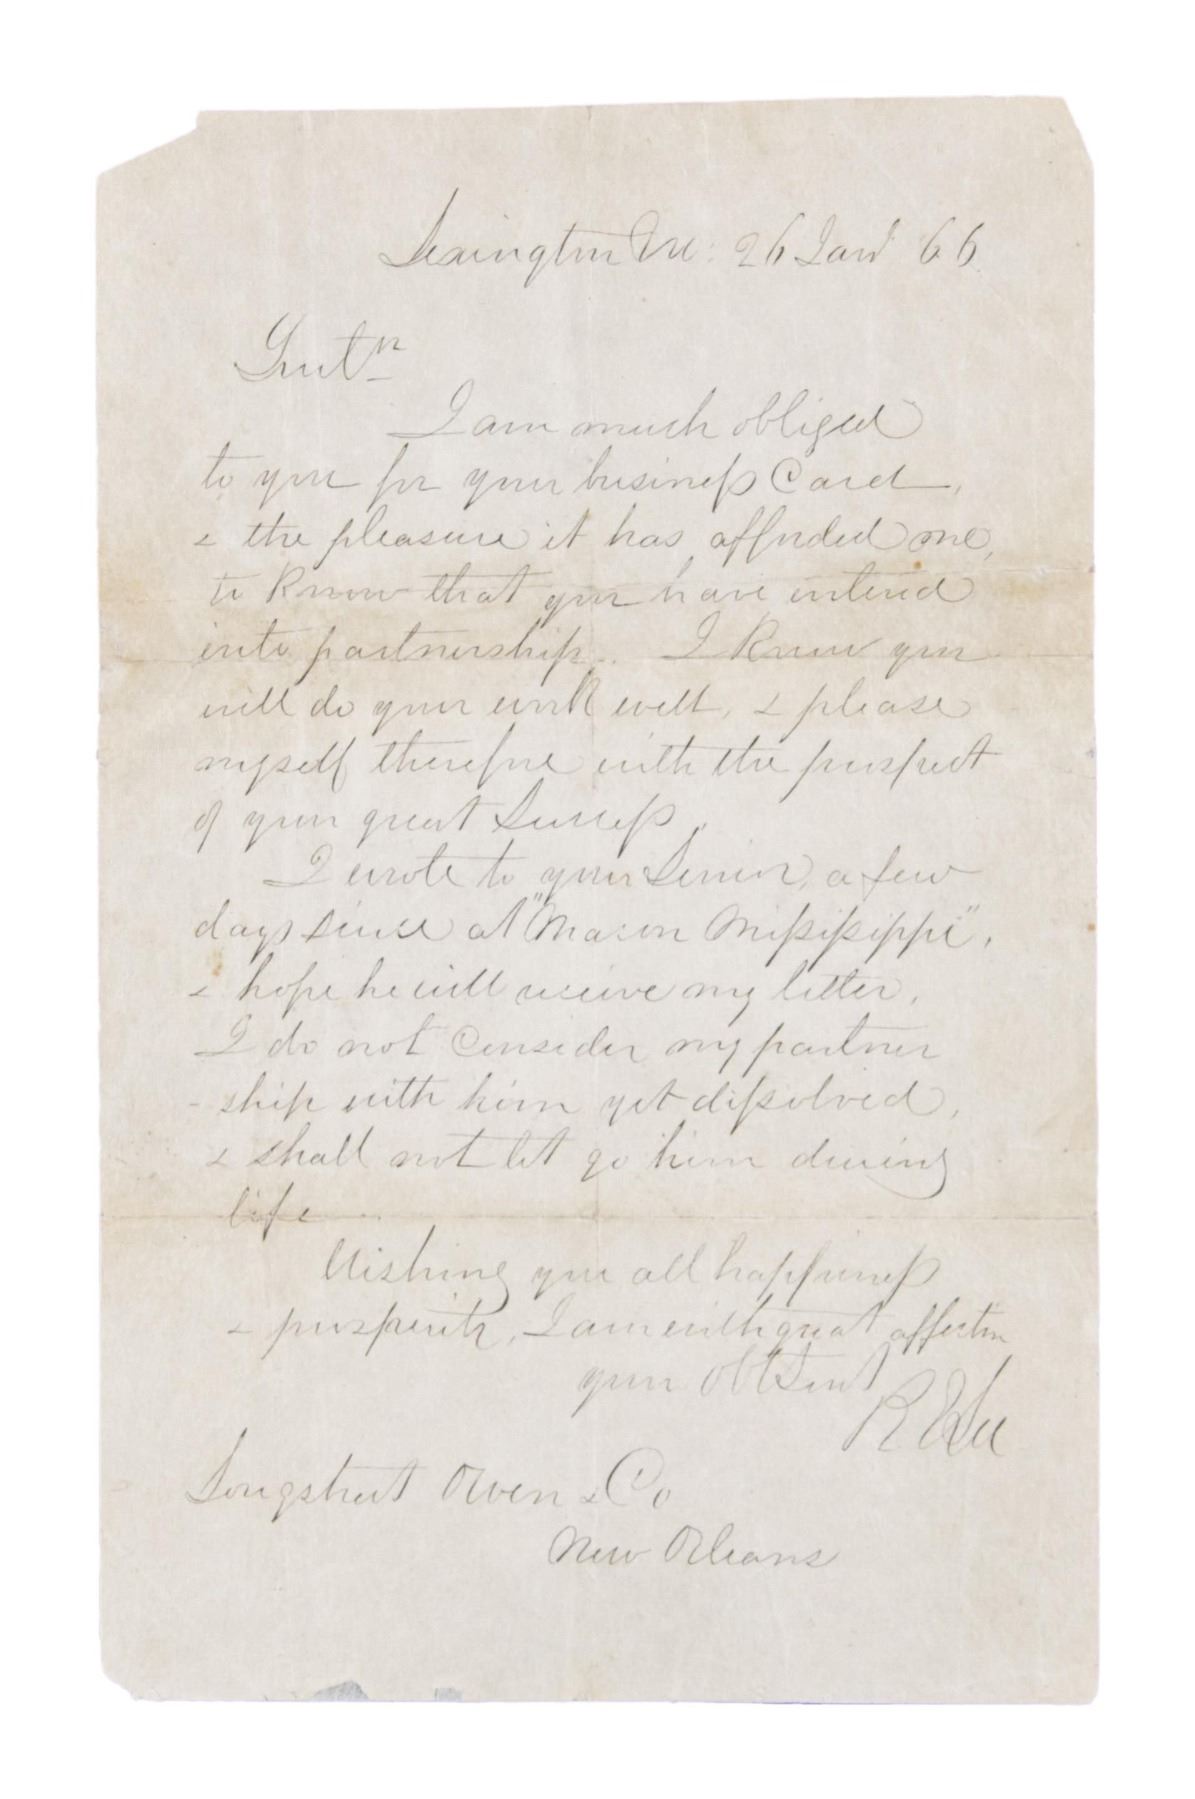 Lexington Va: 26 Jany 66
Gentn
I am much obliged
to you for your business Card,
& the pleasure it has afforded me,
to Know that you have entered
into partnership. I Know you
will do your work well, & please
myself therefore with the prospect
of your great Success.
I wrote to your Senior, a few
days since at "Macon Mississippi",
& hope he will receive my letter.
I do not Consider my partner
- ship with him yet dissolved,
& shall not let go him during
life
Wishing you all happiness
& prosperity, I am with great affection
your obt Servt
R E Lee
Longstreet Owen & Co
New Orleans